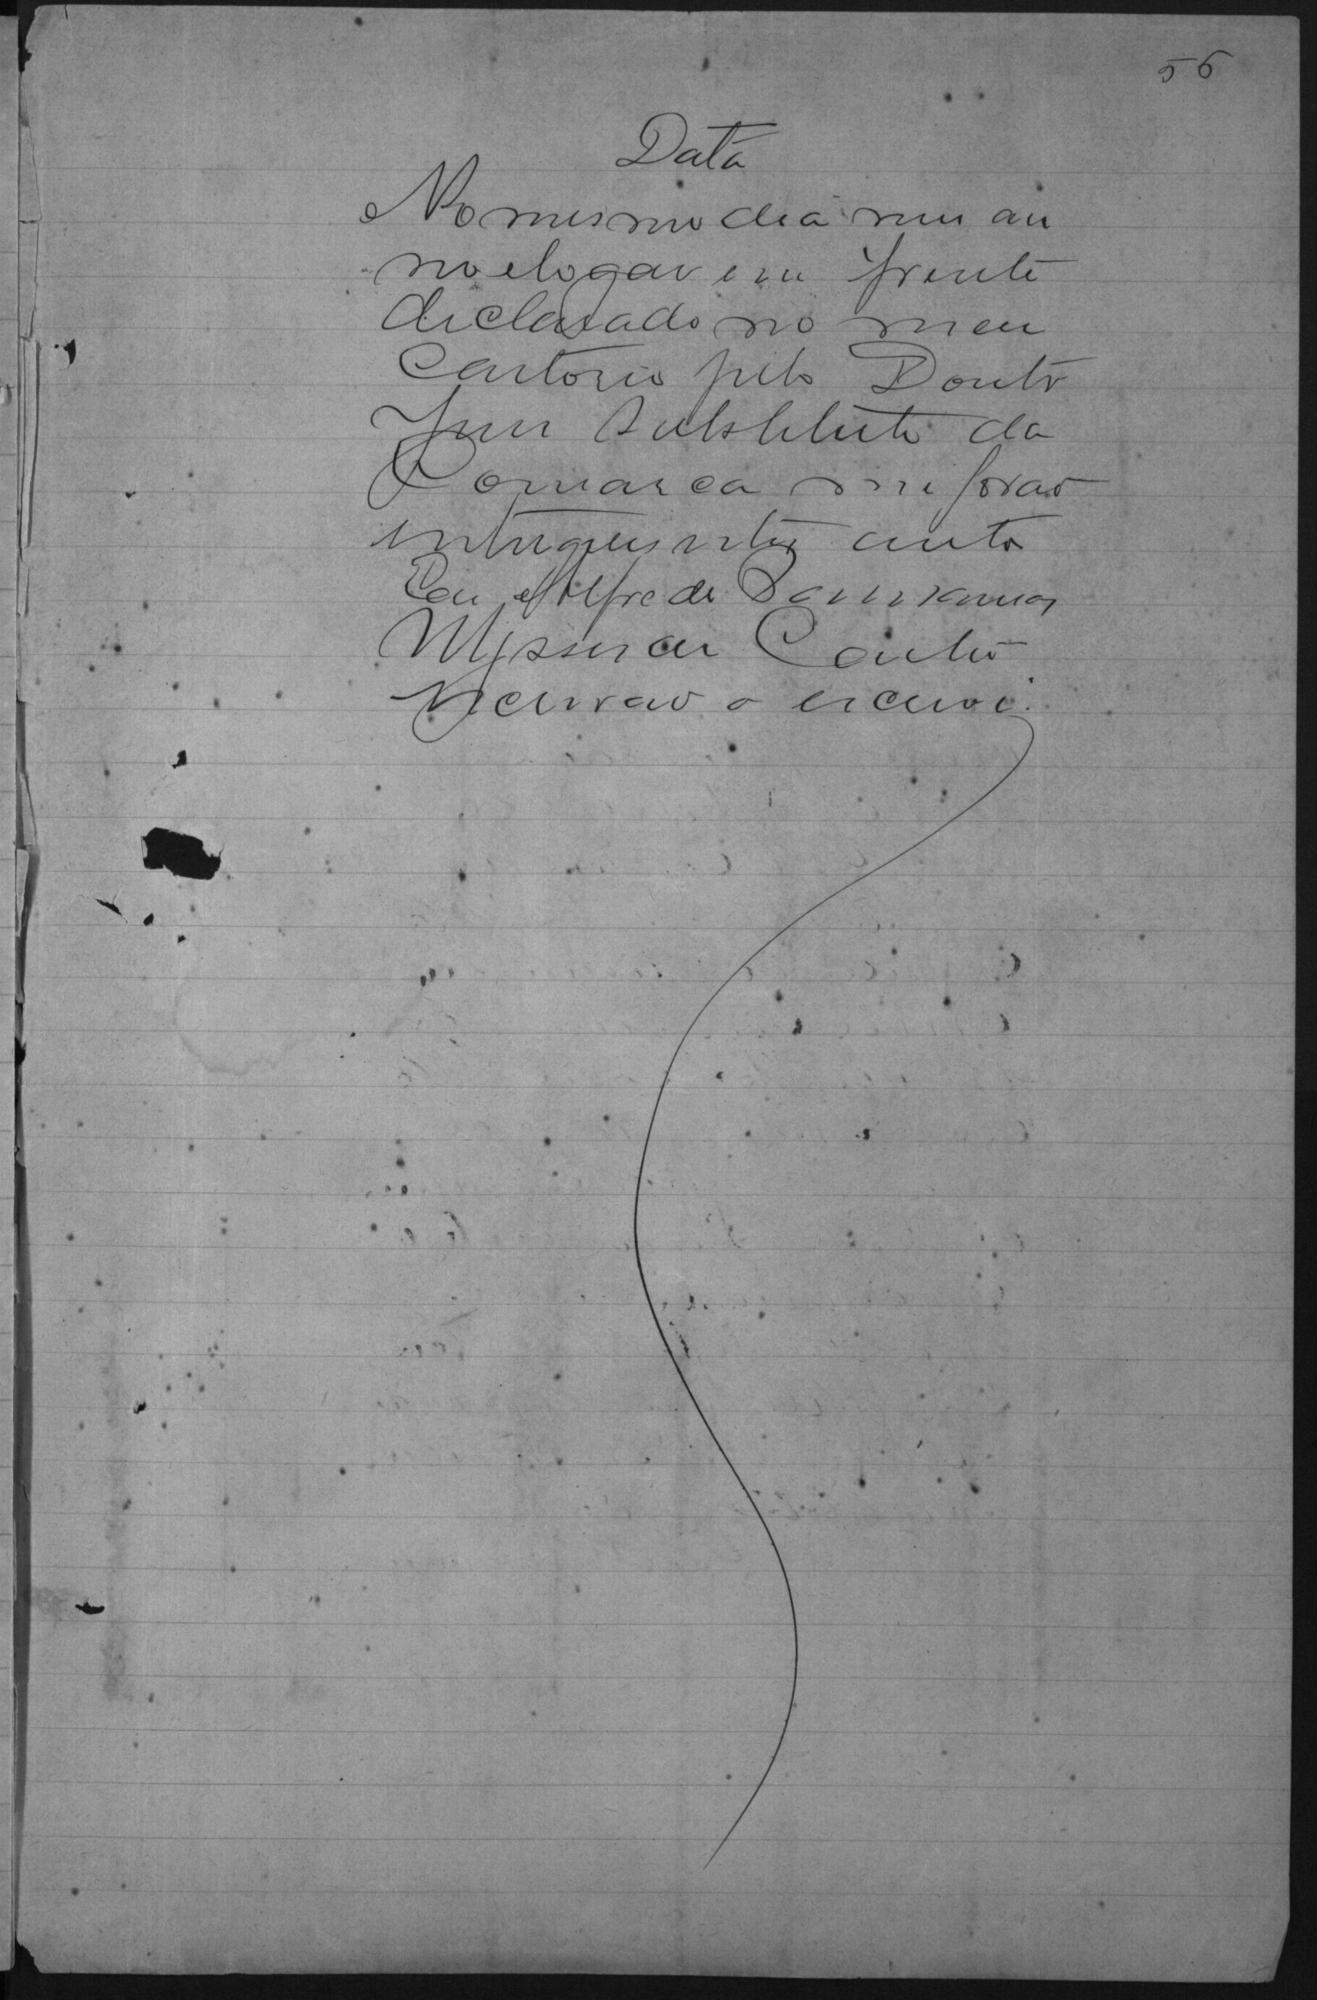 56
Data
No mesmo dia mes an
no e logar em frente
declarado no meu
Cartorio pelo Doutr
Juis Substituto da
Comarca me forão
entregues estes auto
Eu Alfredo
Couto
escrivão o escrevi.